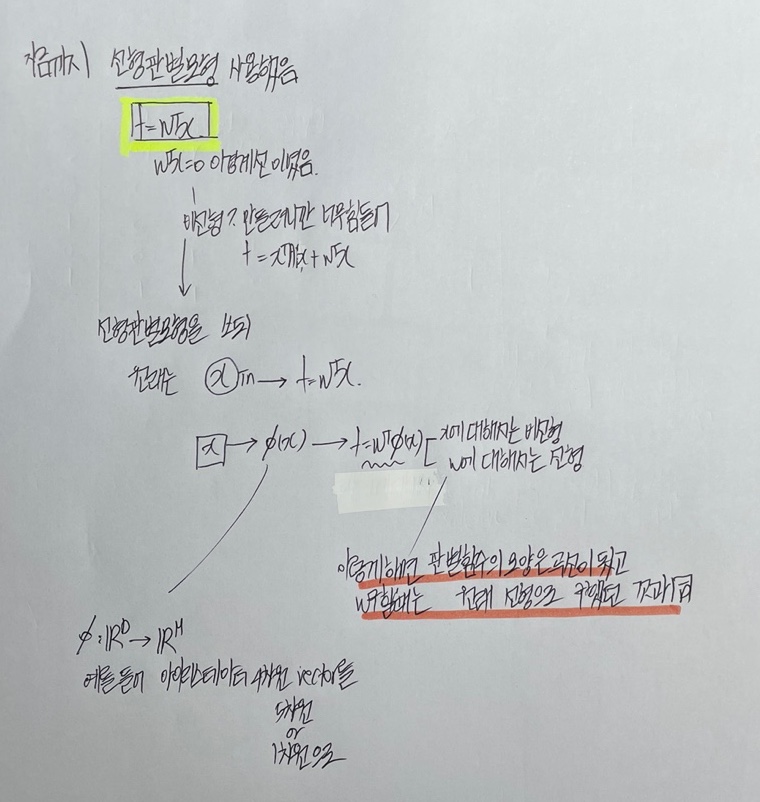 지금까지 선형판별모형 사용했음
t=wᵀx
wᵀx=0 이 경계선이었음.
비선형? 만들려니깐 너무힘들어
t = xᵀAx + wᵀx
선형판별모형을 쓰되
원래는 x in → t=wᵀx.
x → φ(x) → t=wᵀφ(x) [ x에 대해서는 비선형
w에 대해서는 선형
이렇게하면 판별함수의 모양은 곡선이 되고
w구할때는 원래 선형으로 구했던 것과
φ: ℝᴰ → ℝᴴ
예를들어 아이리스데이터 4차원 vector를
5차원
or
1차원으로